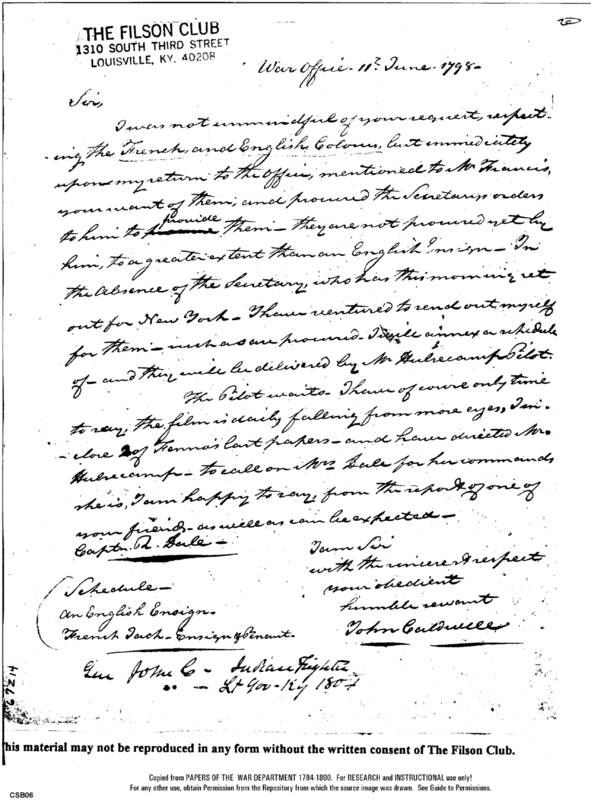 THE FILSON CLUB
1310 SOUTH THIRD STREET
LOUISVILLE, KY. 40208
War Office. 11th June. 1798-
Sir,
I was not unmindful of your request, respect-
ing the French, and English Colours, but immediately
upon my return to the office, mentioned to Mr Francis,
your want of them; and procured the Secretarys orders
to him to provide them - they are not procured yet by
him, to a greater extent than an English Ensign - In
the Absence of the Secretary, who has this morning set
out for New York - I have ventured to send out myself
for them - such as are procured - I will annex a schedule
of - and they will be delivered by Mr Hulsecamp Pilot.
The Pilot waits - I have of course only time
to say, the film is daily falling from more eyes, I in-
close 2 of Fenno's last papers - and have directed Mr.
Hulsecamp - to call on Mrs Dale for her commands
she is, I am happy to say, from the report of one of
your friends - as well as can be expected -
Captn. R. Dale -
I am Sir
with the sincerest respect
your obedient
humble servant
John Caldwell
Schedule -
An English Ensign.
French Jack - Ensign & Penant.
Gen John C - Indian Fighter
" - Lt Gov - Ky 180
67214
his material may not be reproduced in any form without the written consent of The Filson Club.
Copied from PAPERS OF THE WAR DEPARTMENT 1784-1800. For RESEARCH and INSTRUCTIONAL use only!
For any other use, obtain Permission from the Repository from which the source image was drawn. See Guide to Permissions.
CSB06